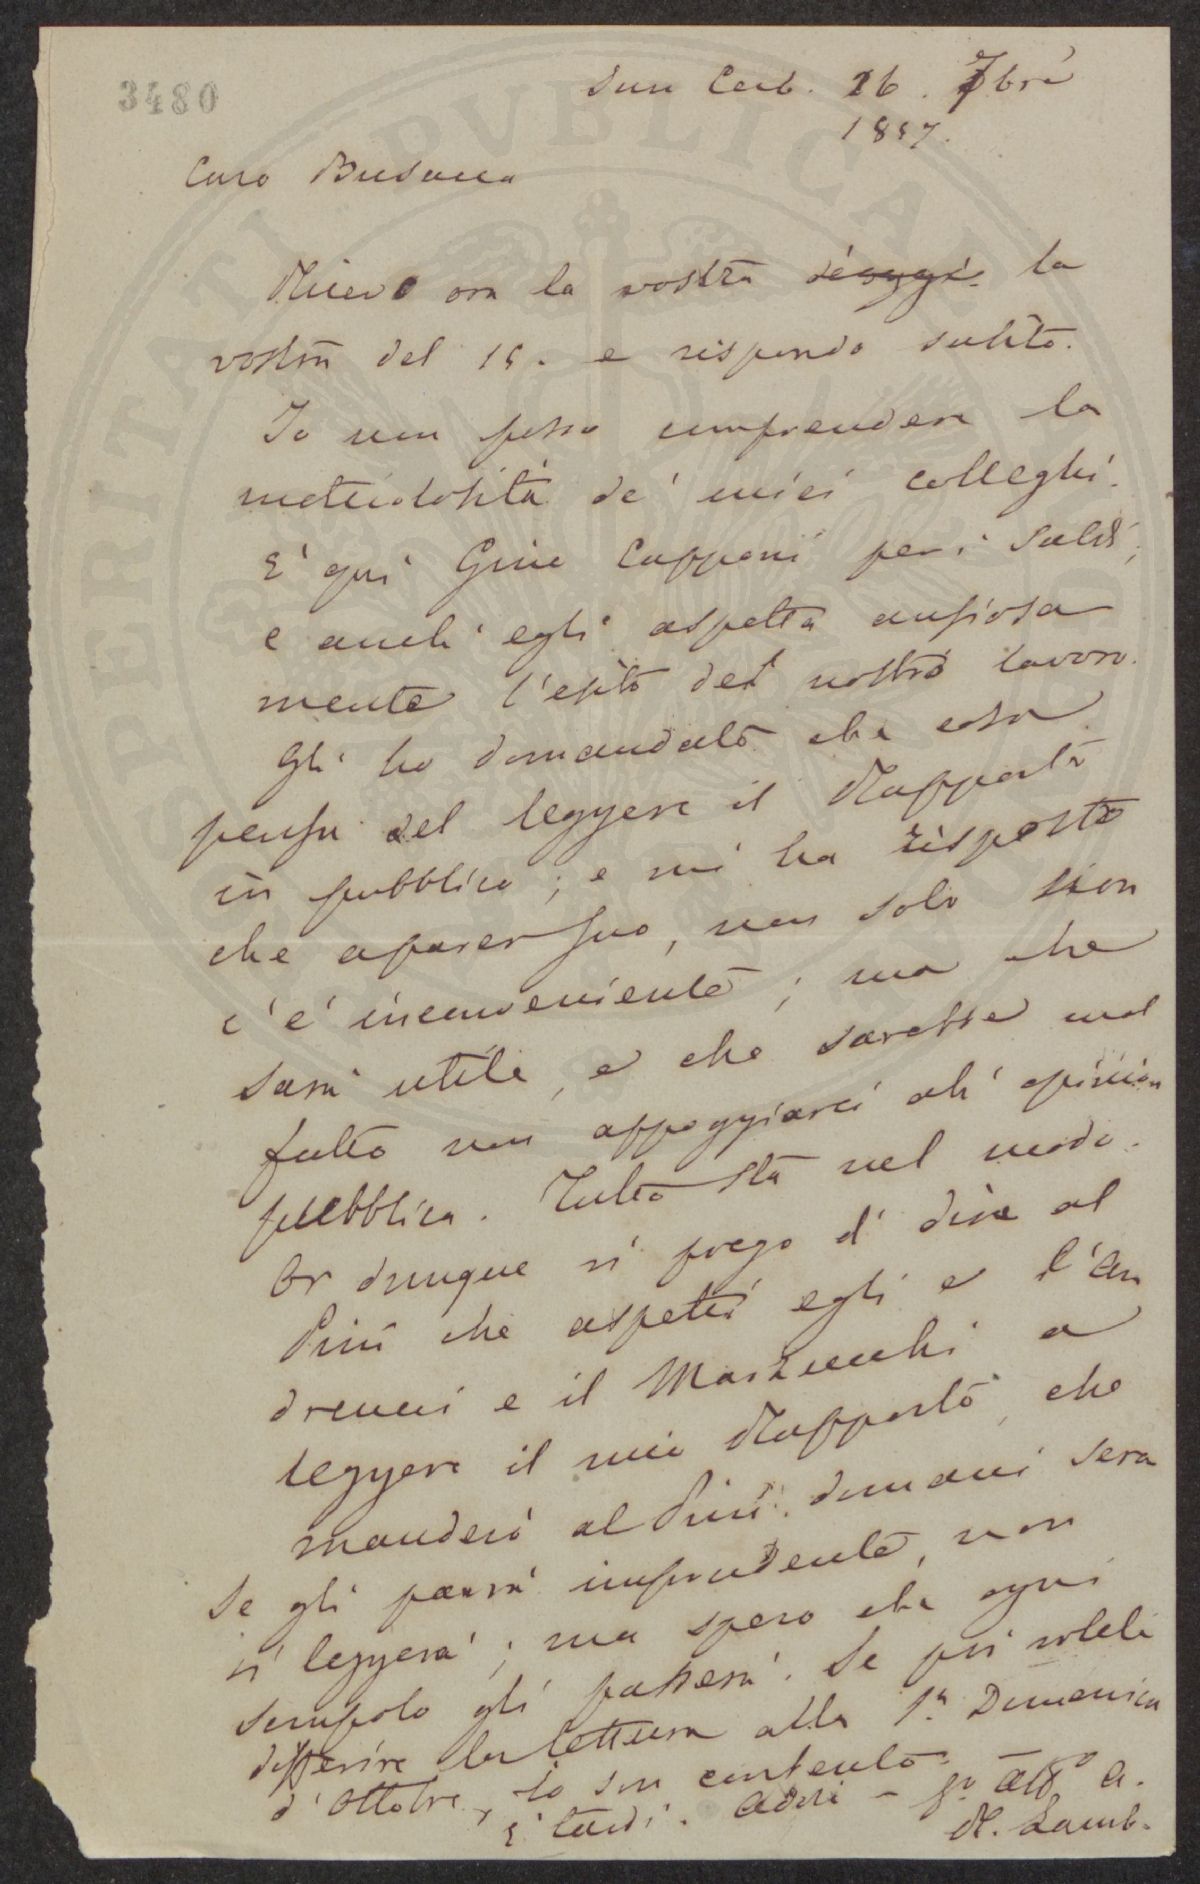 3480
San Cerb. 16. 7bre
1857.
Caro Busacca
Ricevo ora la vostra la
vostra del 15. e rispondo subito.
Io non posso comprendere la
meticolosità de' miei colleghi.
E' qui Gino Capponi per i Saldi,
e anch'egli aspetta ansiosa
mente l'esito del nostro lavoro.
Gli ho domandato che cosa
pensa del leggere il Rapporto
in pubblico; e mi ha risposto
che a parer suo, non solo non
c'è inconveniente; ma che
sarà utile, e che sarebbe mal
fatto non appoggiarci all'opinion
pubblica. Tutto sta nel modo.
Or dunque vi prego di dire al
Pini che aspetti egli e l'An
dreucci e il Marzucchi a
leggere il mio Rapporto, che
manderò al Pini domani sera
Se gli parrà imprudente, non
si leggerà; ma spero che ogni
scrupolo gli passerà. Se poi volete
differire la lettura alla 1.a Domenica
d'Ottobre, io son contento.
E' tardi. Addio - aff.o a.
R. Lamb.